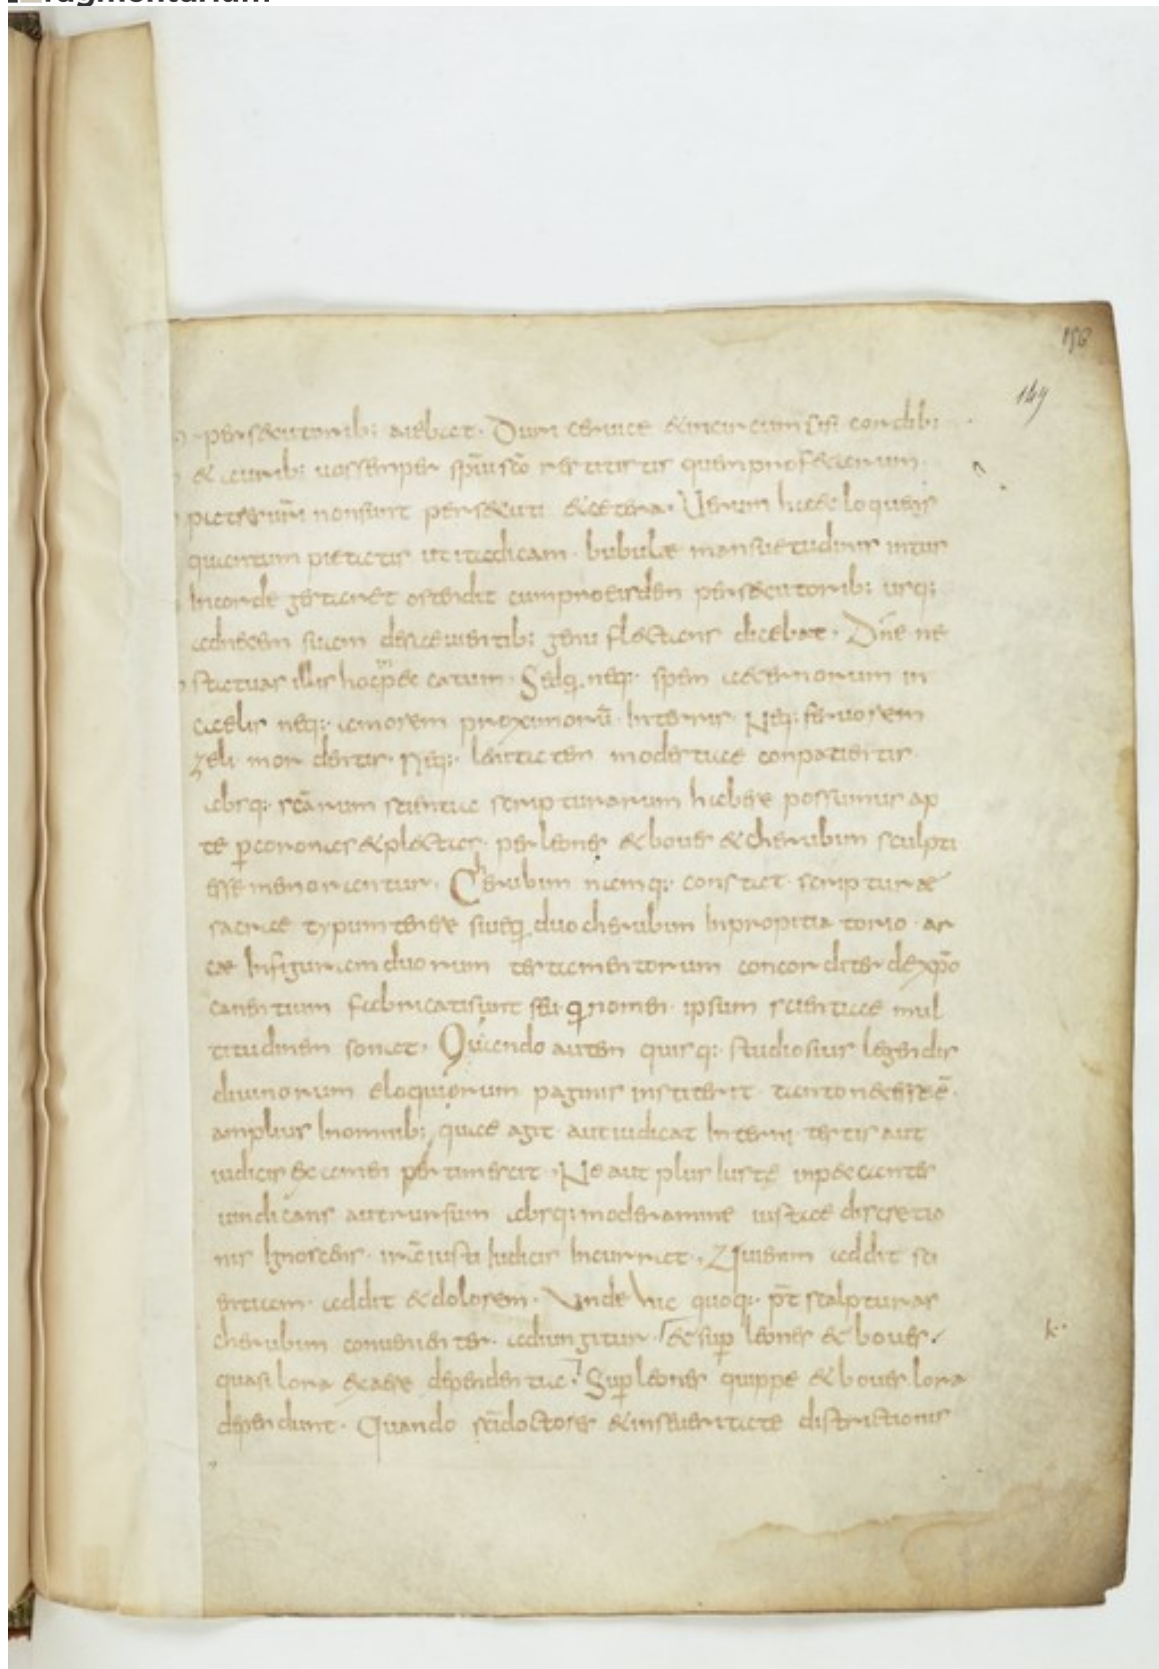 fragmentarium
156
149
persecutorib: aiebat. Dum ceruice & incircumcisi cordib:
& aurib: uos semper sp̄iu sc̄o restitistis quem profetarum
patrum ūri non sunt persecuti & cetera. Uerum haec loquens
quantum pietatis ut ita dicam bubulae mansuetudinis intus
In corde gestaret ostendit cum pro eisdem persecutorib: usq:
ad necem suam deseuientib: genu flectens dicebat. Dn̄e ne
statuas illis hoc peccatum. Sed neq: spem aeternorum in
caelis neq: amorem proximorū In terris. Neq: feruorem
zeli mordentis. Neq: lenitatem modestiae conpatientis.
absq: sc̄arum scientia scripturarum habere possumus ap
te p coronas & plectas. per leones & boues & cherubim sculpti
esse memorantur. Cherubim namq: constat scripturae
sacrae typum tenere siue q duo cherubim In propitiatorio ar
cae In figuram duorum testamentorum concorditer de xp̄o
canentium fabricati sunt seu q nomen ipsum scientiae mul
titudinem sonat. Quando autem quisq: studiosius legendis
diuinorum eloquiorum paginis institerit tanto necesse ē
amplius In omnib: quae agit aut iudicat Interni testis aut
iudicis examen pertimescat. Ne aut plus Iuste inpeccantes
uindicans aut rursum absq: moderamine iustae discretio
nis Ignoscens irā iusti Iudicis Incurrat. Qui enim addit sci
entiam addit & dolorem. Unde hic quoq: p̄t scalpturas
cherubim conuenienter adiungitur & sup leones & boues
quasi lora ex aere dependentia. Sup leones quippe & boues lora
dependunt. Quando sc̄i doctores & in seueritate districtionis
k..